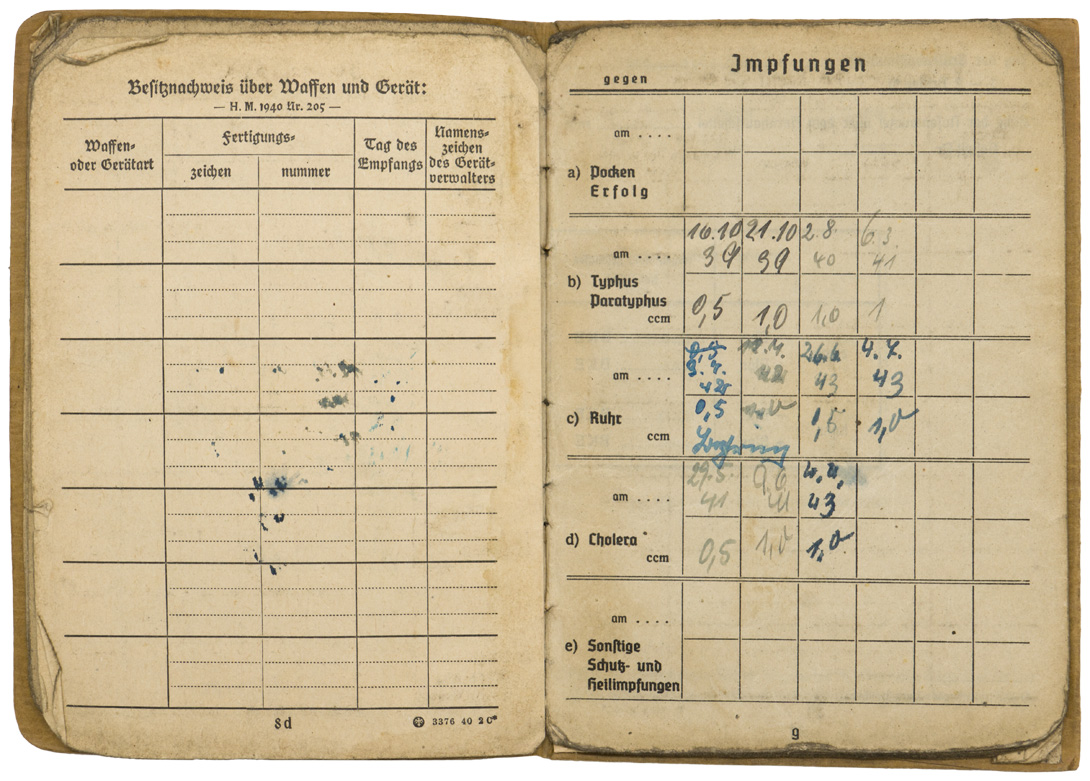 Besitznachweis über Waffen und Gerät:
— H. M. 1940 Nr. 205 —
Waffen-
oder Gerätart
Fertigungs-
zeichen
nummer
Tag des
Empfangs
Namens-
zeichen
des Gerät-
verwalters
8d
3376 40 2 C
Impfungen
gegen
am . . . .
a) Pocken
Erfolg
16.10 21.10 2.8 6.3.
am . . . . 39 39 40 41
b) Typhus
Paratyphus
ccm 0,5 1,0 1,0 1
26.6. 4.7.
am . . . . 42 42 43 43
c) Ruhr
ccm 0,5 1,0 1,5 1,0
29.5. 9.6 4.4.
am . . . . 41 41 43
d) Cholera
ccm 0,5 1,0 1,0
am . . . .
e) Sonstige
Schutz- und
Heilimpfungen
9